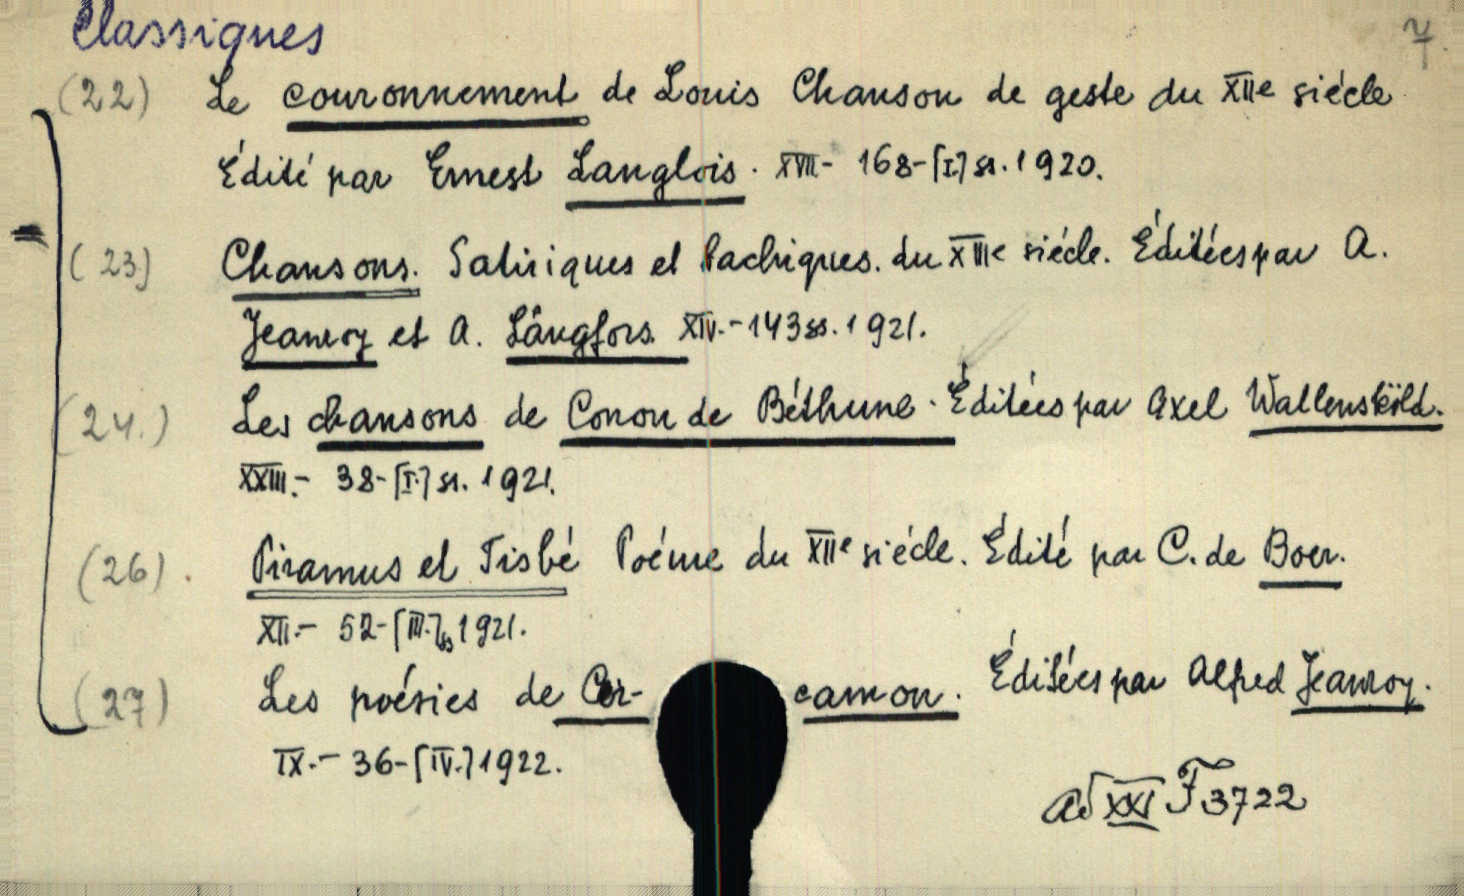 Classiques
7.
(22) Le couronnement de Louis Chanson de geste du XIIe siécle
Édité par Ernest Langlois. XVII- 168-[I] s1. 1920.
(23) Chansons. Satiriques et bachiques. du XIIIe siécle. Éditées par A.
Jeanroy et A. Långfors. XIV.-143 ss. 1921.
(24.) Les chansons de Conon de Béthune. Éditées par Axel Wallensköld.
XXIII.- 38-[I.] s1. 1921.
(26). Piramus et Tisbé Poéme du XIIe siécle. Édité par C. de Boer.
XII.- 52-[III.] 1921.
(27) Les poésies de Cer-camon. Éditées par Alfred Jeanroy.
IX.- 36-[IV.] 1922.
Ad XXI F 3722